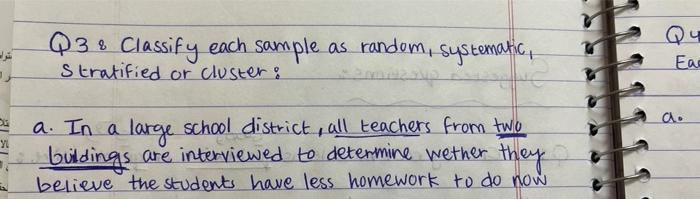 Q3 : Classify each sample as random, systematic,
Stratified or cluster :
a. In a large school district, all teachers from two
buildings are interviewed to determine wether they
believe the students have less homework to do now
Q4
Ea
a.